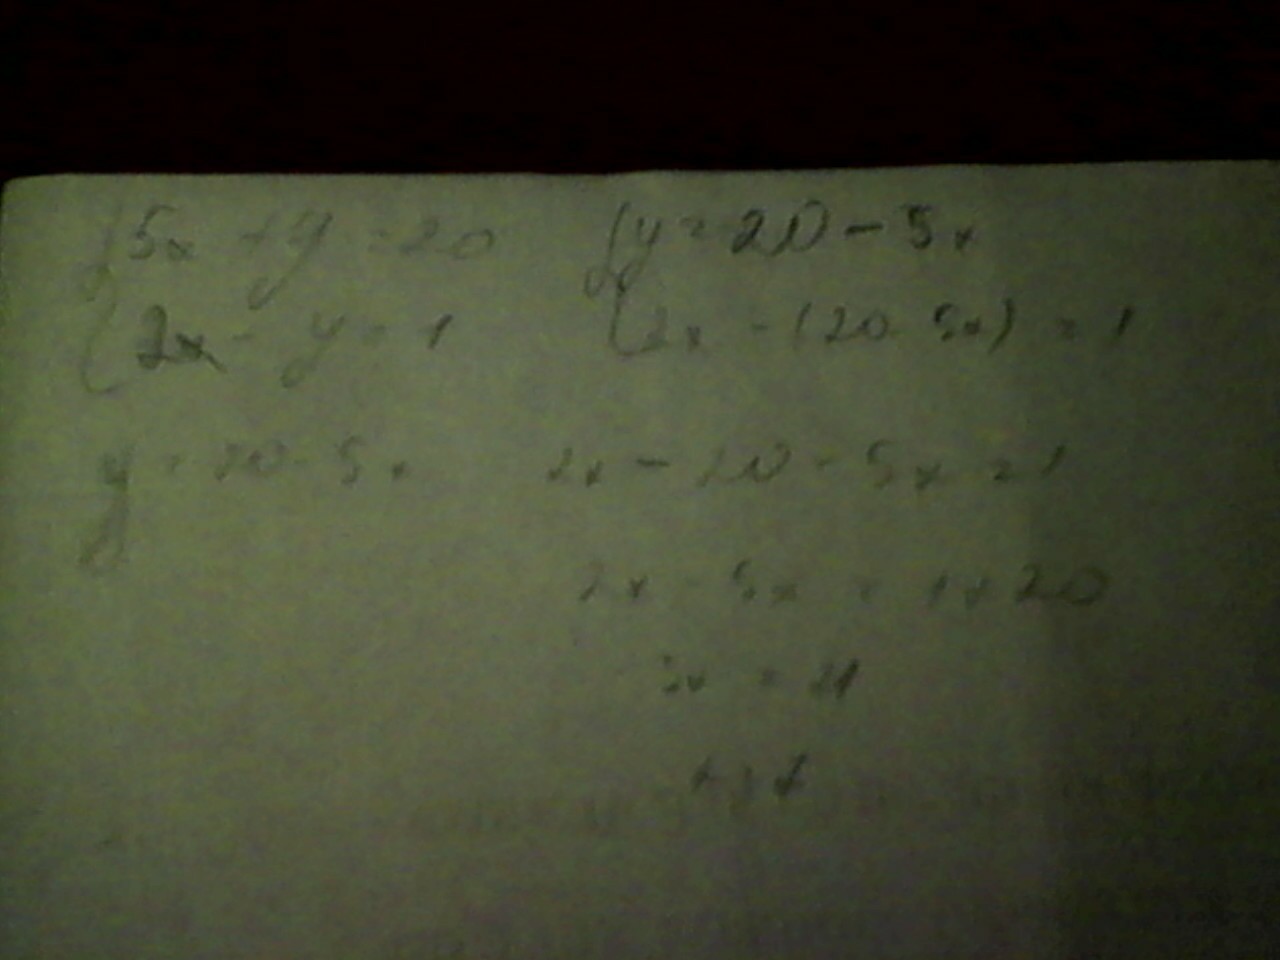 5x + y = 20
2x - y = 1
y = 20 - 5x
2x - (20 - 5x) = 1
y = 20 - 5x
2x - 20 - 5x = 1
2x - 5x = 1 + 20
3x = 21
x = 7